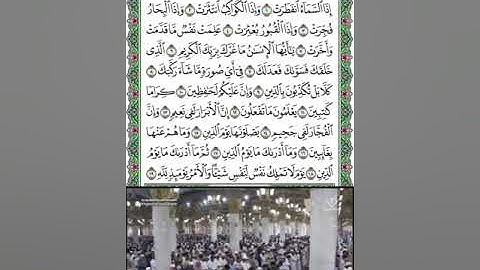 إِذَا ٱلسَّمَآءُ ٱنفَطَرَتْ ١ وَإِذَا ٱلْكَوَاكِبُ ٱنتَثَرَتْ ٢ وَإِذَا ٱلْبِحَارُ
فُجِّرَتْ ٣ وَإِذَا ٱلْقُبُورُ بُعْثِرَتْ ٤ عَلِمَتْ نَفْسٌ مَّا قَدَّمَتْ
وَأَخَّرَتْ ٥ يَٰٓأَيُّهَا ٱلْإِنسَٰنُ مَا غَرَّكَ بِرَبِّكَ ٱلْكَرِيمِ ٦ ٱلَّذِى
خَلَقَكَ فَسَوَّىٰكَ فَعَدَلَكَ ٧ فِىٓ أَىِّ صُورَةٍ مَّا شَآءَ رَكَّبَكَ ٨
كَلَّا بَلْ تُكَذِّبُونَ بِٱلدِّينِ ٩ وَإِنَّ عَلَيْكُمْ لَحَٰفِظِينَ ١٠ كِرَامًا
كَٰتِبِينَ ١١ يَعْلَمُونَ مَا تَفْعَلُونَ ١٢ إِنَّ ٱلْأَبْرَارَ لَفِى نَعِيمٍ ١٣ وَإِنَّ
ٱلْفُجَّارَ لَفِى جَحِيمٍ ١٤ يَصْلَوْنَهَا يَوْمَ ٱلدِّينِ ١٥ وَمَا هُمْ عَنْهَا
بِغَآئِبِينَ ١٦ وَمَآ أَدْرَىٰكَ مَا يَوْمُ ٱلدِّينِ ١٧ ثُمَّ مَآ أَدْرَىٰكَ مَا يَوْمُ
ٱلدِّينِ ١٨ يَوْمَ لَا تَمْلِكُ نَفْسٌ لِّنَفْسٍ شَيْـًٔا وَٱلْأَمْرُ يَوْمَئِذٍ لِّلَّهِ ١٩